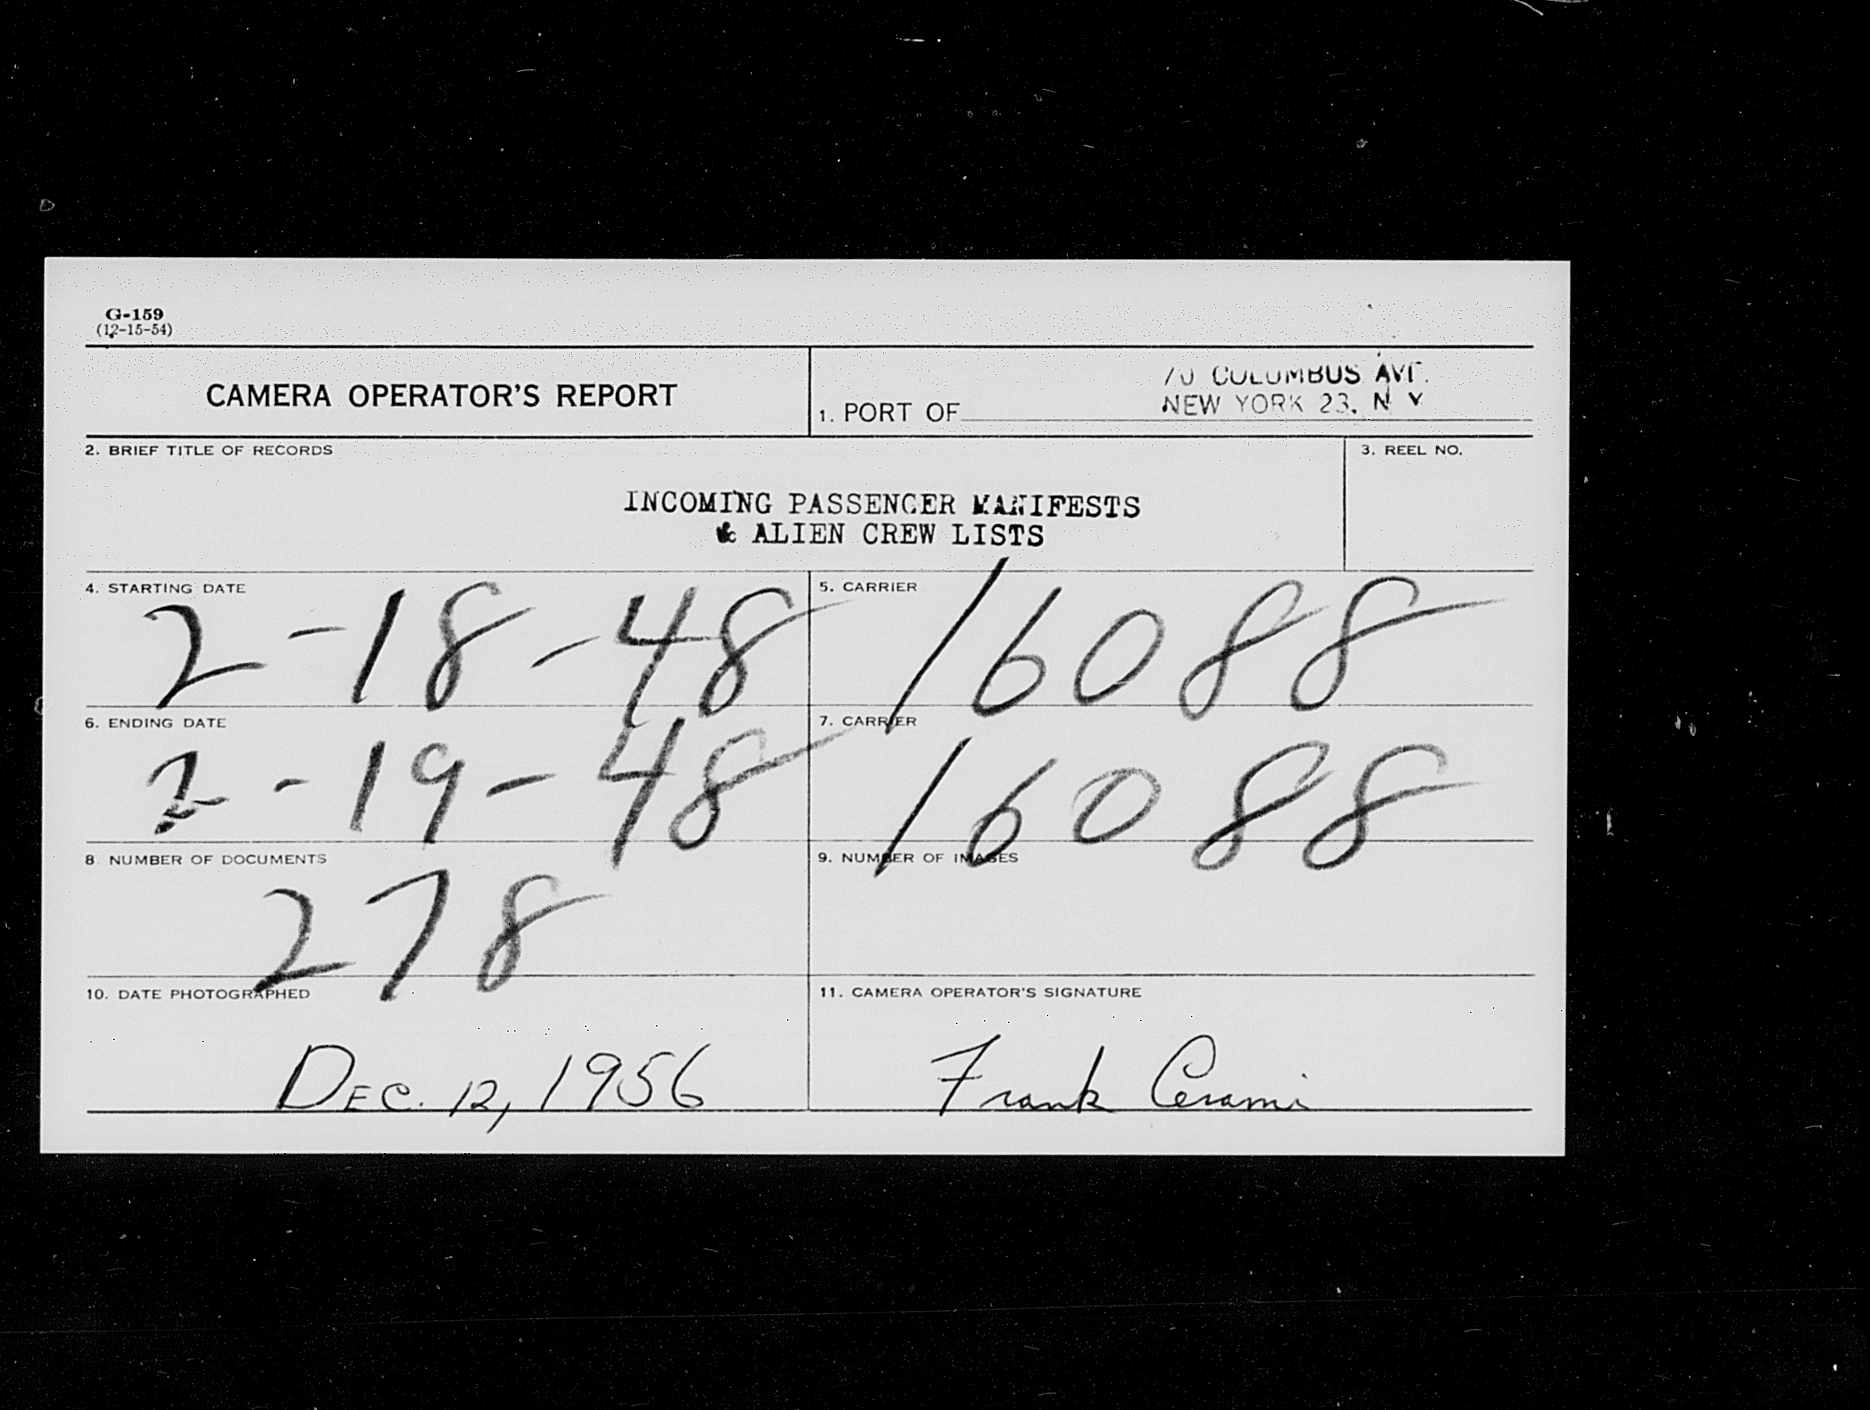 G-159
(12-15-54)
CAMERA OPERATOR'S REPORT
1. PORT OF
70 COLUMBUS AVE.
NEW YORK 23, N Y
2. BRIEF TITLE OF RECORDS
3. REEL NO.
INCOMING PASSENGER MANIFESTS
& ALIEN CREW LISTS
4. STARTING DATE
2-18-48
5. CARRIER
16088
6. ENDING DATE
2-19-48
7. CARRIER
16088
8 NUMBER OF DOCUMENTS
278
9. NUMBER OF IMAGES
10. DATE PHOTOGRAPHED
DEC. 12, 1956
11. CAMERA OPERATOR'S SIGNATURE
Frank Cerami